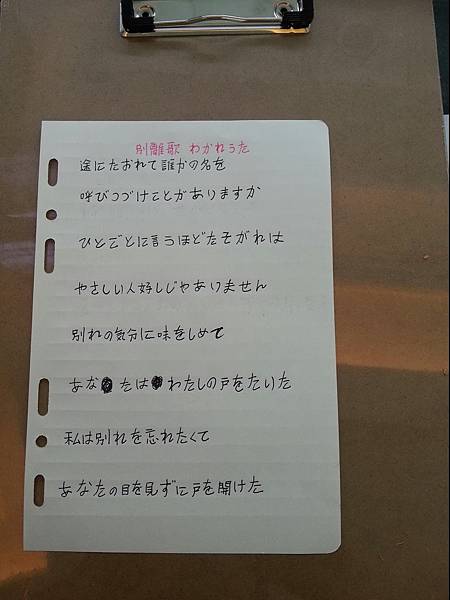 別離歌 わかれうた
途にたおれて誰かの名を
呼びつづけことがありますか
ひとごとに言うほどたそがれは
やさしい人好しじゃありません
別れの気分に味をしめて
あなたは わたしの戸をたいた
私は別れを忘れたくて
あなたの目を見ずに戸を開けた